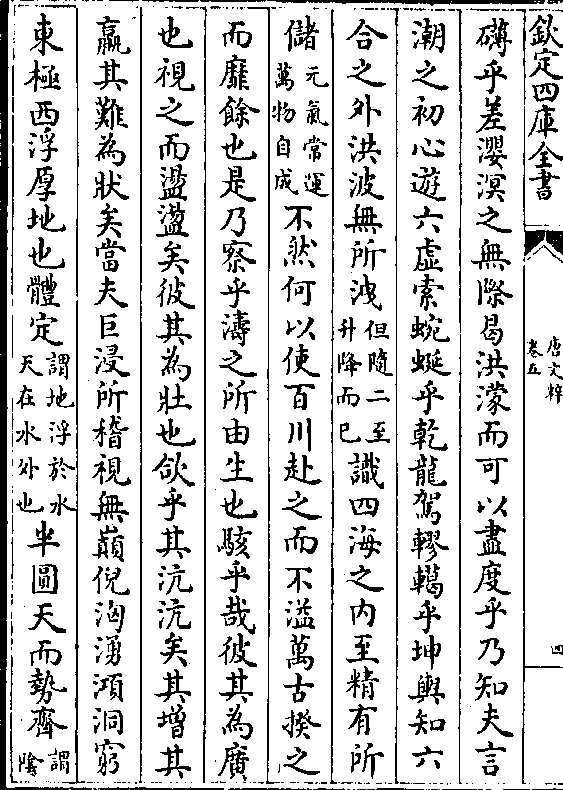 欽定四庫全書
唐文粹
卷五
四
礴乎差瀴溟之無際曷洪濛而可以盡度乎乃知夫言
潮之初心遊六虛索蜿蜒乎乾龍駕轇轕乎坤輿知六
合之外洪波無所洩但隨二至升降而已識四海之內至精有所
儲元氣常運萬物自成不然何以使百川赴之而不溢萬古揆之
而靡餘也是乃察乎濤之所由生也駭乎哉彼其為廣
也視之而盪盪矣彼其為壯也欱乎其沆沆矣其增其
贏其難為狀矣當夫巨浸所稽視無巔倪洶湧澒洞窮
東極西浮厚地也體定謂地浮於水天在水外也半圓天而勢齊謂陰